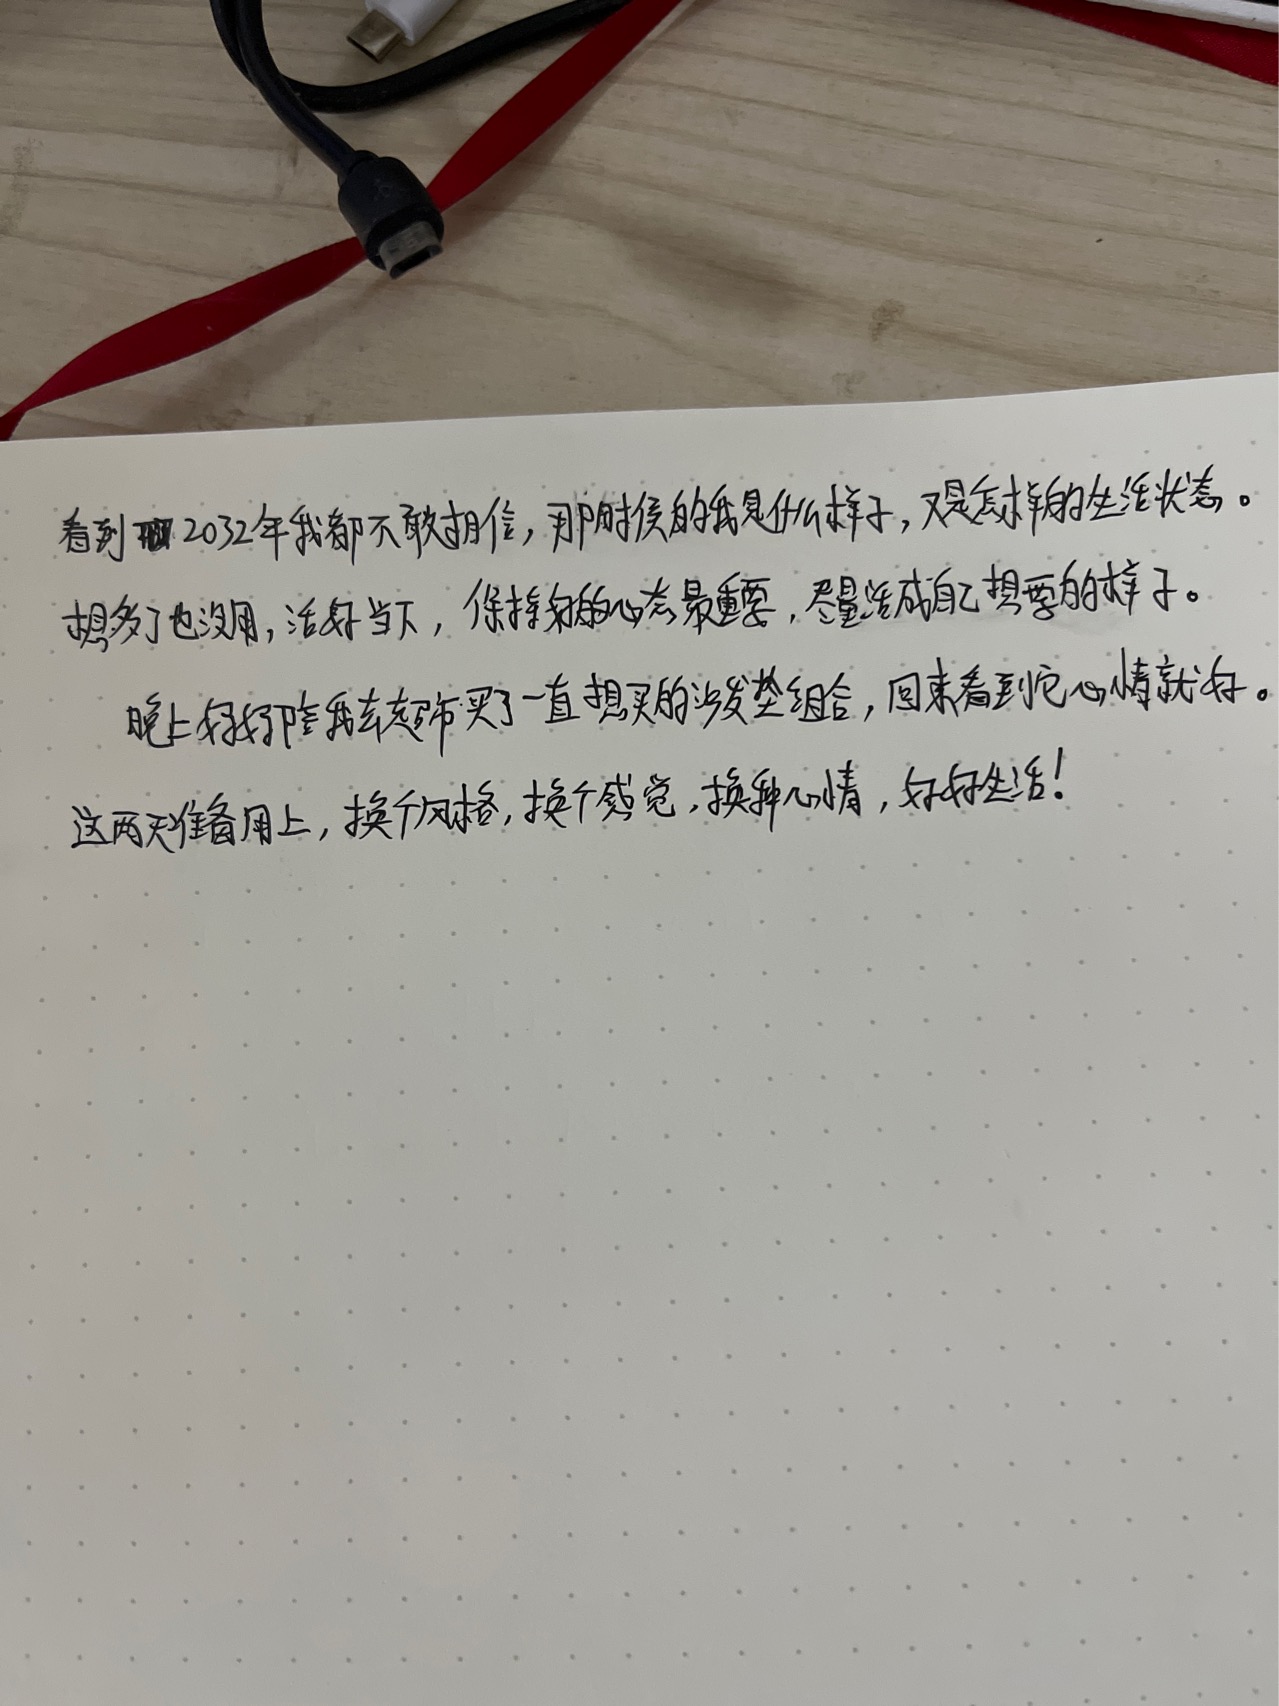 看到2032年我都不敢相信，那时候的我是什么样子，又是怎样的生活状态。
想多了也没用，活好当下，保持好的心态最重要，尽量活成自己想要的样子。
晚上好好陪我去超市买了一直想买的沙发垫组合，回来看到它心情就好。
这两天准备用上，换个风格，换个感觉，换种心情，好好生活！